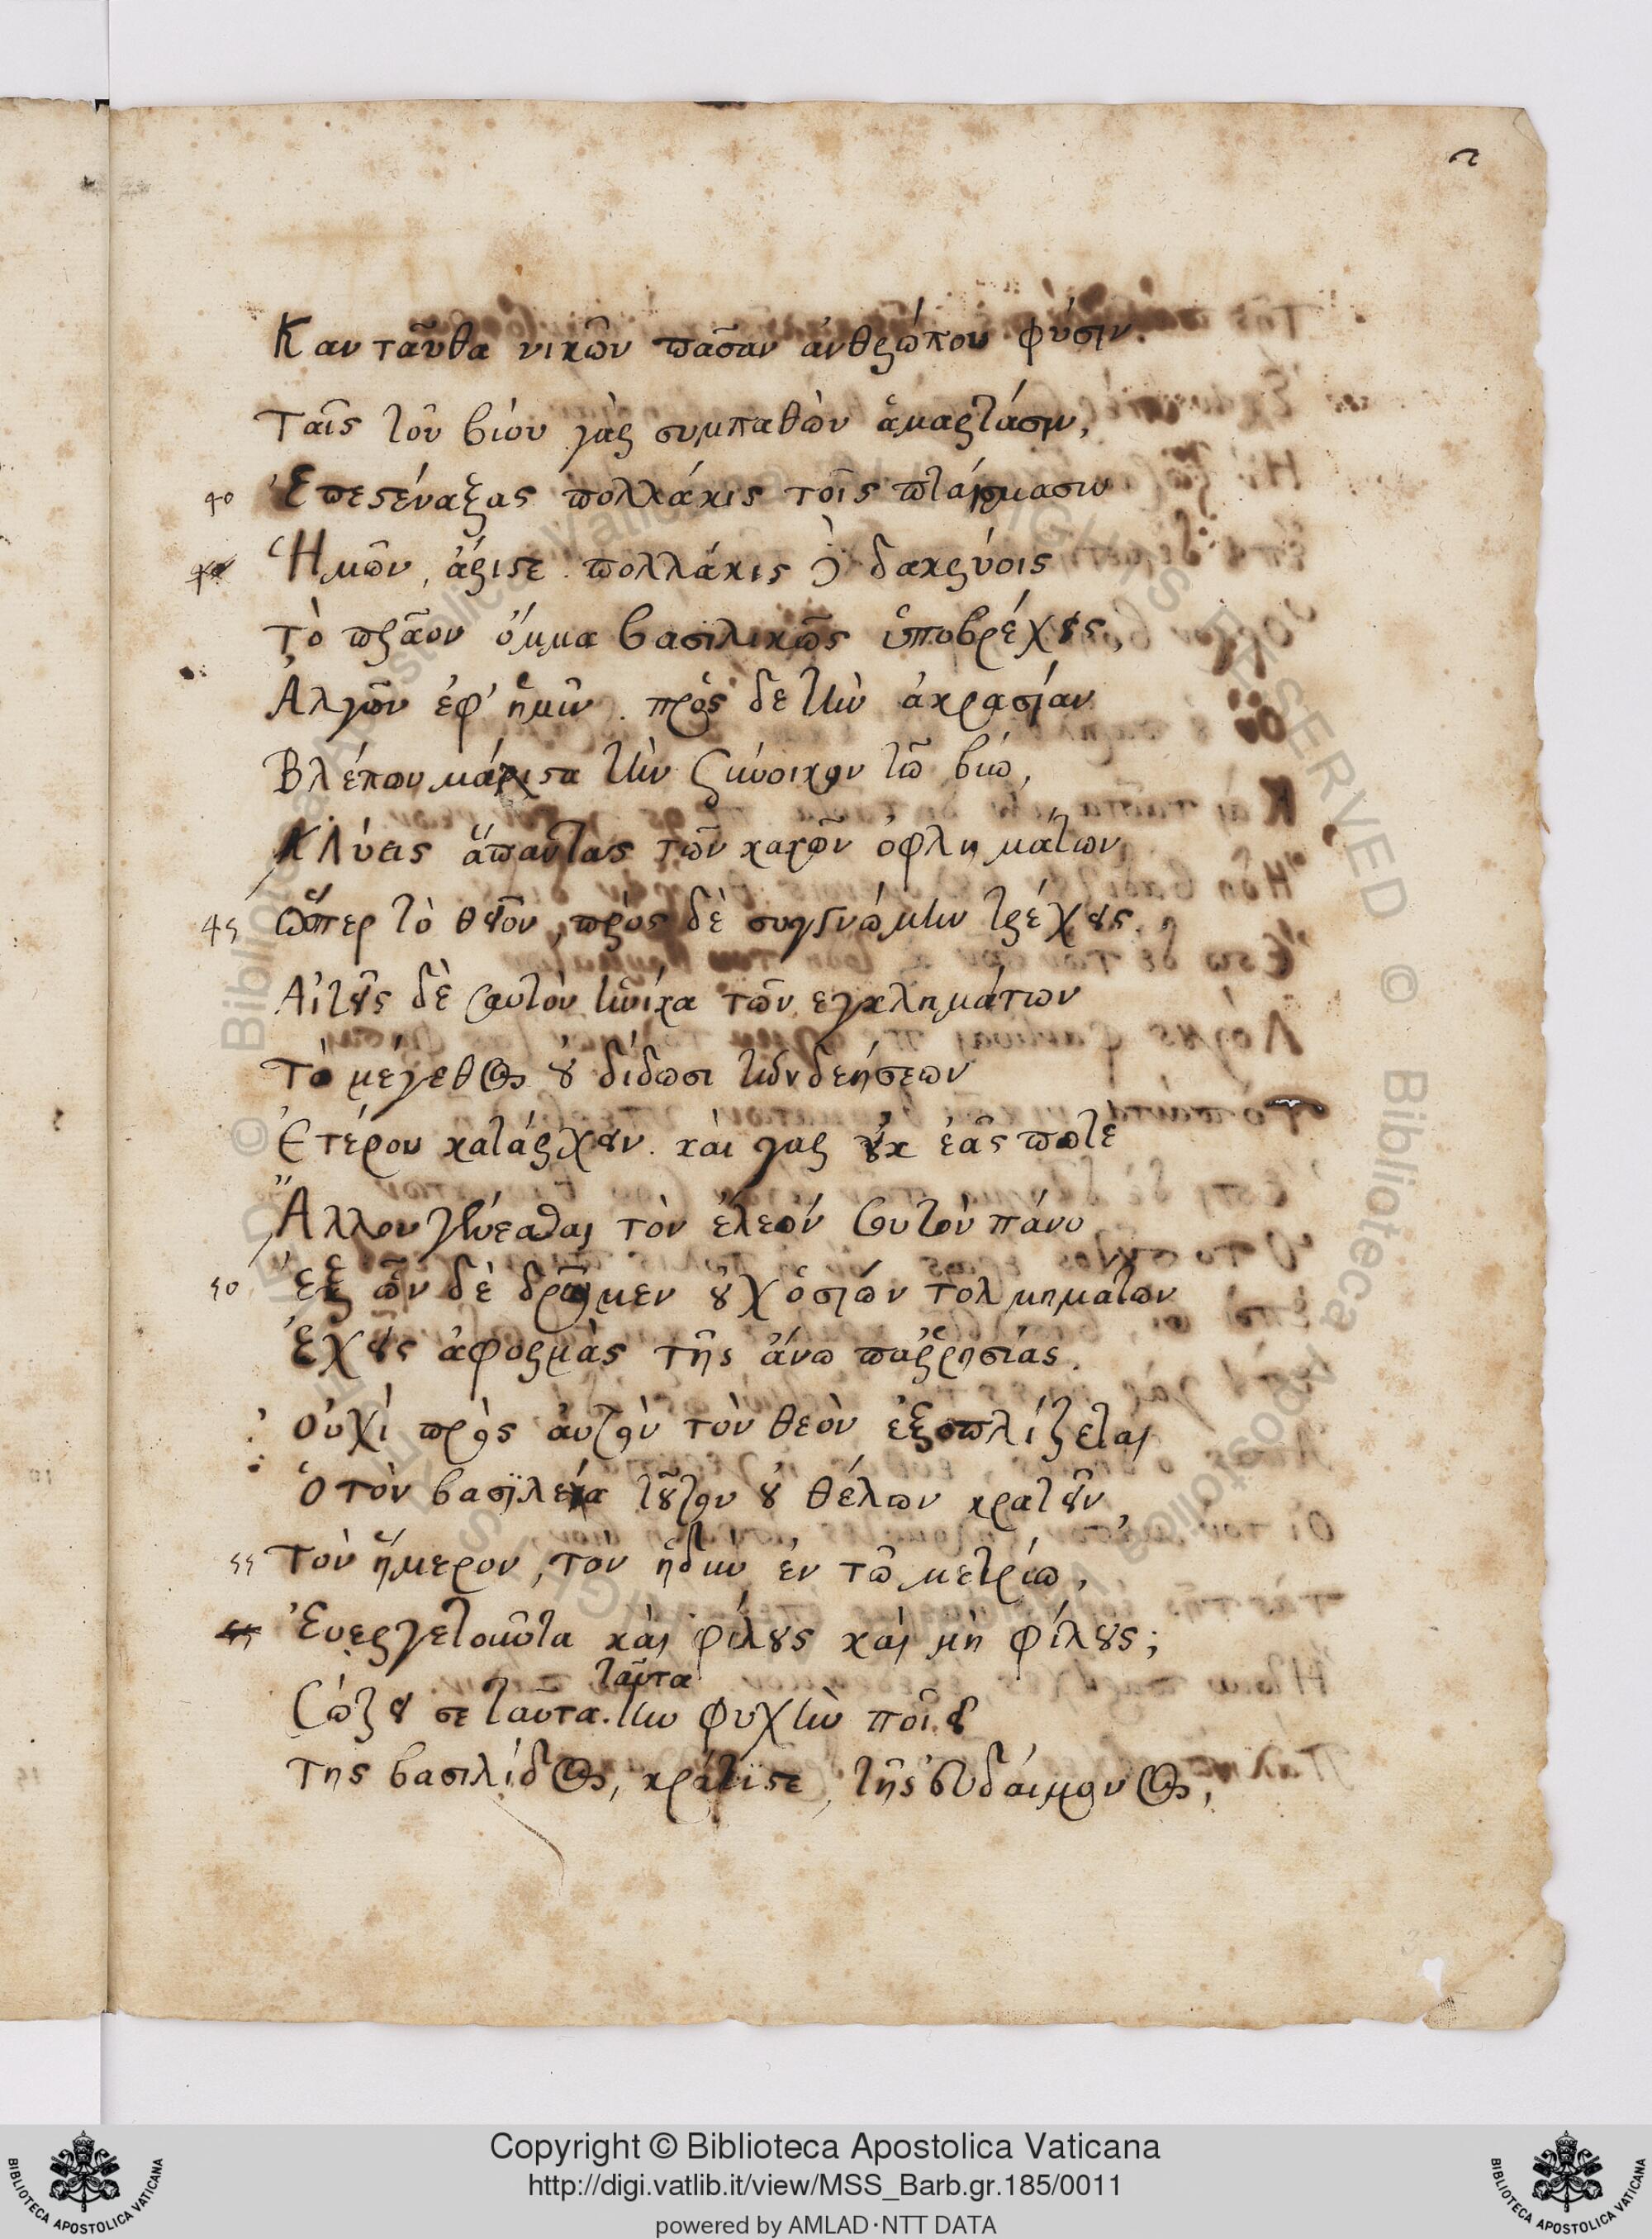 2
Καν ταῦθα νικῶν πᾶσαν ἀνθρώπου φύσιν.
Ταῖς τοῦ βίου γὰρ συμπαθῶν ἁμαρτάσιν,
40 Ἐπεστέναξας πολλάκις τοῖς πταίσμασιν
Ἡμῶν, ἄριστε. πολλάκις δακρύοις
Τὸ πρᾶον ὄμμα βασιλικῶς ὑποβρέχεις,
Ἀλγῶν ἐφ' ἡμῖν. πρὸς δε τὴν ἀκρασίαν
Βλέπων μάλιστα τὴν ξύνοικον τῶ βίω,
Κλύεις ἅπαντας τῶν κακῶν ὀφλημάτων
45 Ὥσπερ τὸ θεῖον, πρὸς δὲ συγγνώμην τρέχεις,
Αἰτεῖς δὲ σαυτὸν ἡνίκα τῶν εγκλημάτων
Τὸ μέγεθος οὐ δίδωσι τὴν δεήσεων
Ἑτέρου κατάρχειν. καὶ γαρ οὐκ ἐᾶς ποτε
Ἄλλου γενέσθαι τὸν ἔλεον σαυτοῦ πάνυ
50 Ἐξ ὧν δὲ δρῶμεν οὐχ ὁσίων τολμημάτων
Ἔχεις ἀφορμὰς τῆς ἄνω παῤῥησίας.
Οὐχὶ πρὸς αὐτὸν τὸν θεὸν ἐξοπλίζεται
Ὁ τὸν βασϊλέα τοῦτον οὐ θέλων κρατεῖν,
55 Τὸν ἥμερον, τὸν ἡδὺν ἐν τῶ μετρίω,
Ἐυεργετοῦντα καὶ φίλους καὶ μὴ φίλους;
ταῦτα
Σώζει σε ταῦτα. τὴν ψυχὴν ποιεῖ
Της βασιλίδος, κράτιστε, τῆς εὐδαίμονος,
Copyright © Biblioteca Apostolica Vaticana
http://digi.vatlib.it/view/MSS_Barb.gr.185/0011
powered by AMLAD·NTT DATA
BIBLIOTECA APOSTOLICA VATICANA
BIBLIOTECA APOSTOLICA VATICANA